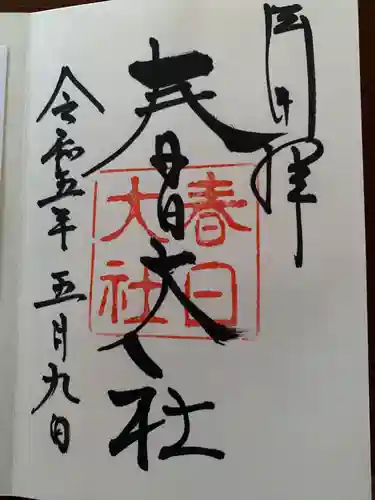 拝
春日大社
春日
大社
令和五年五月九日